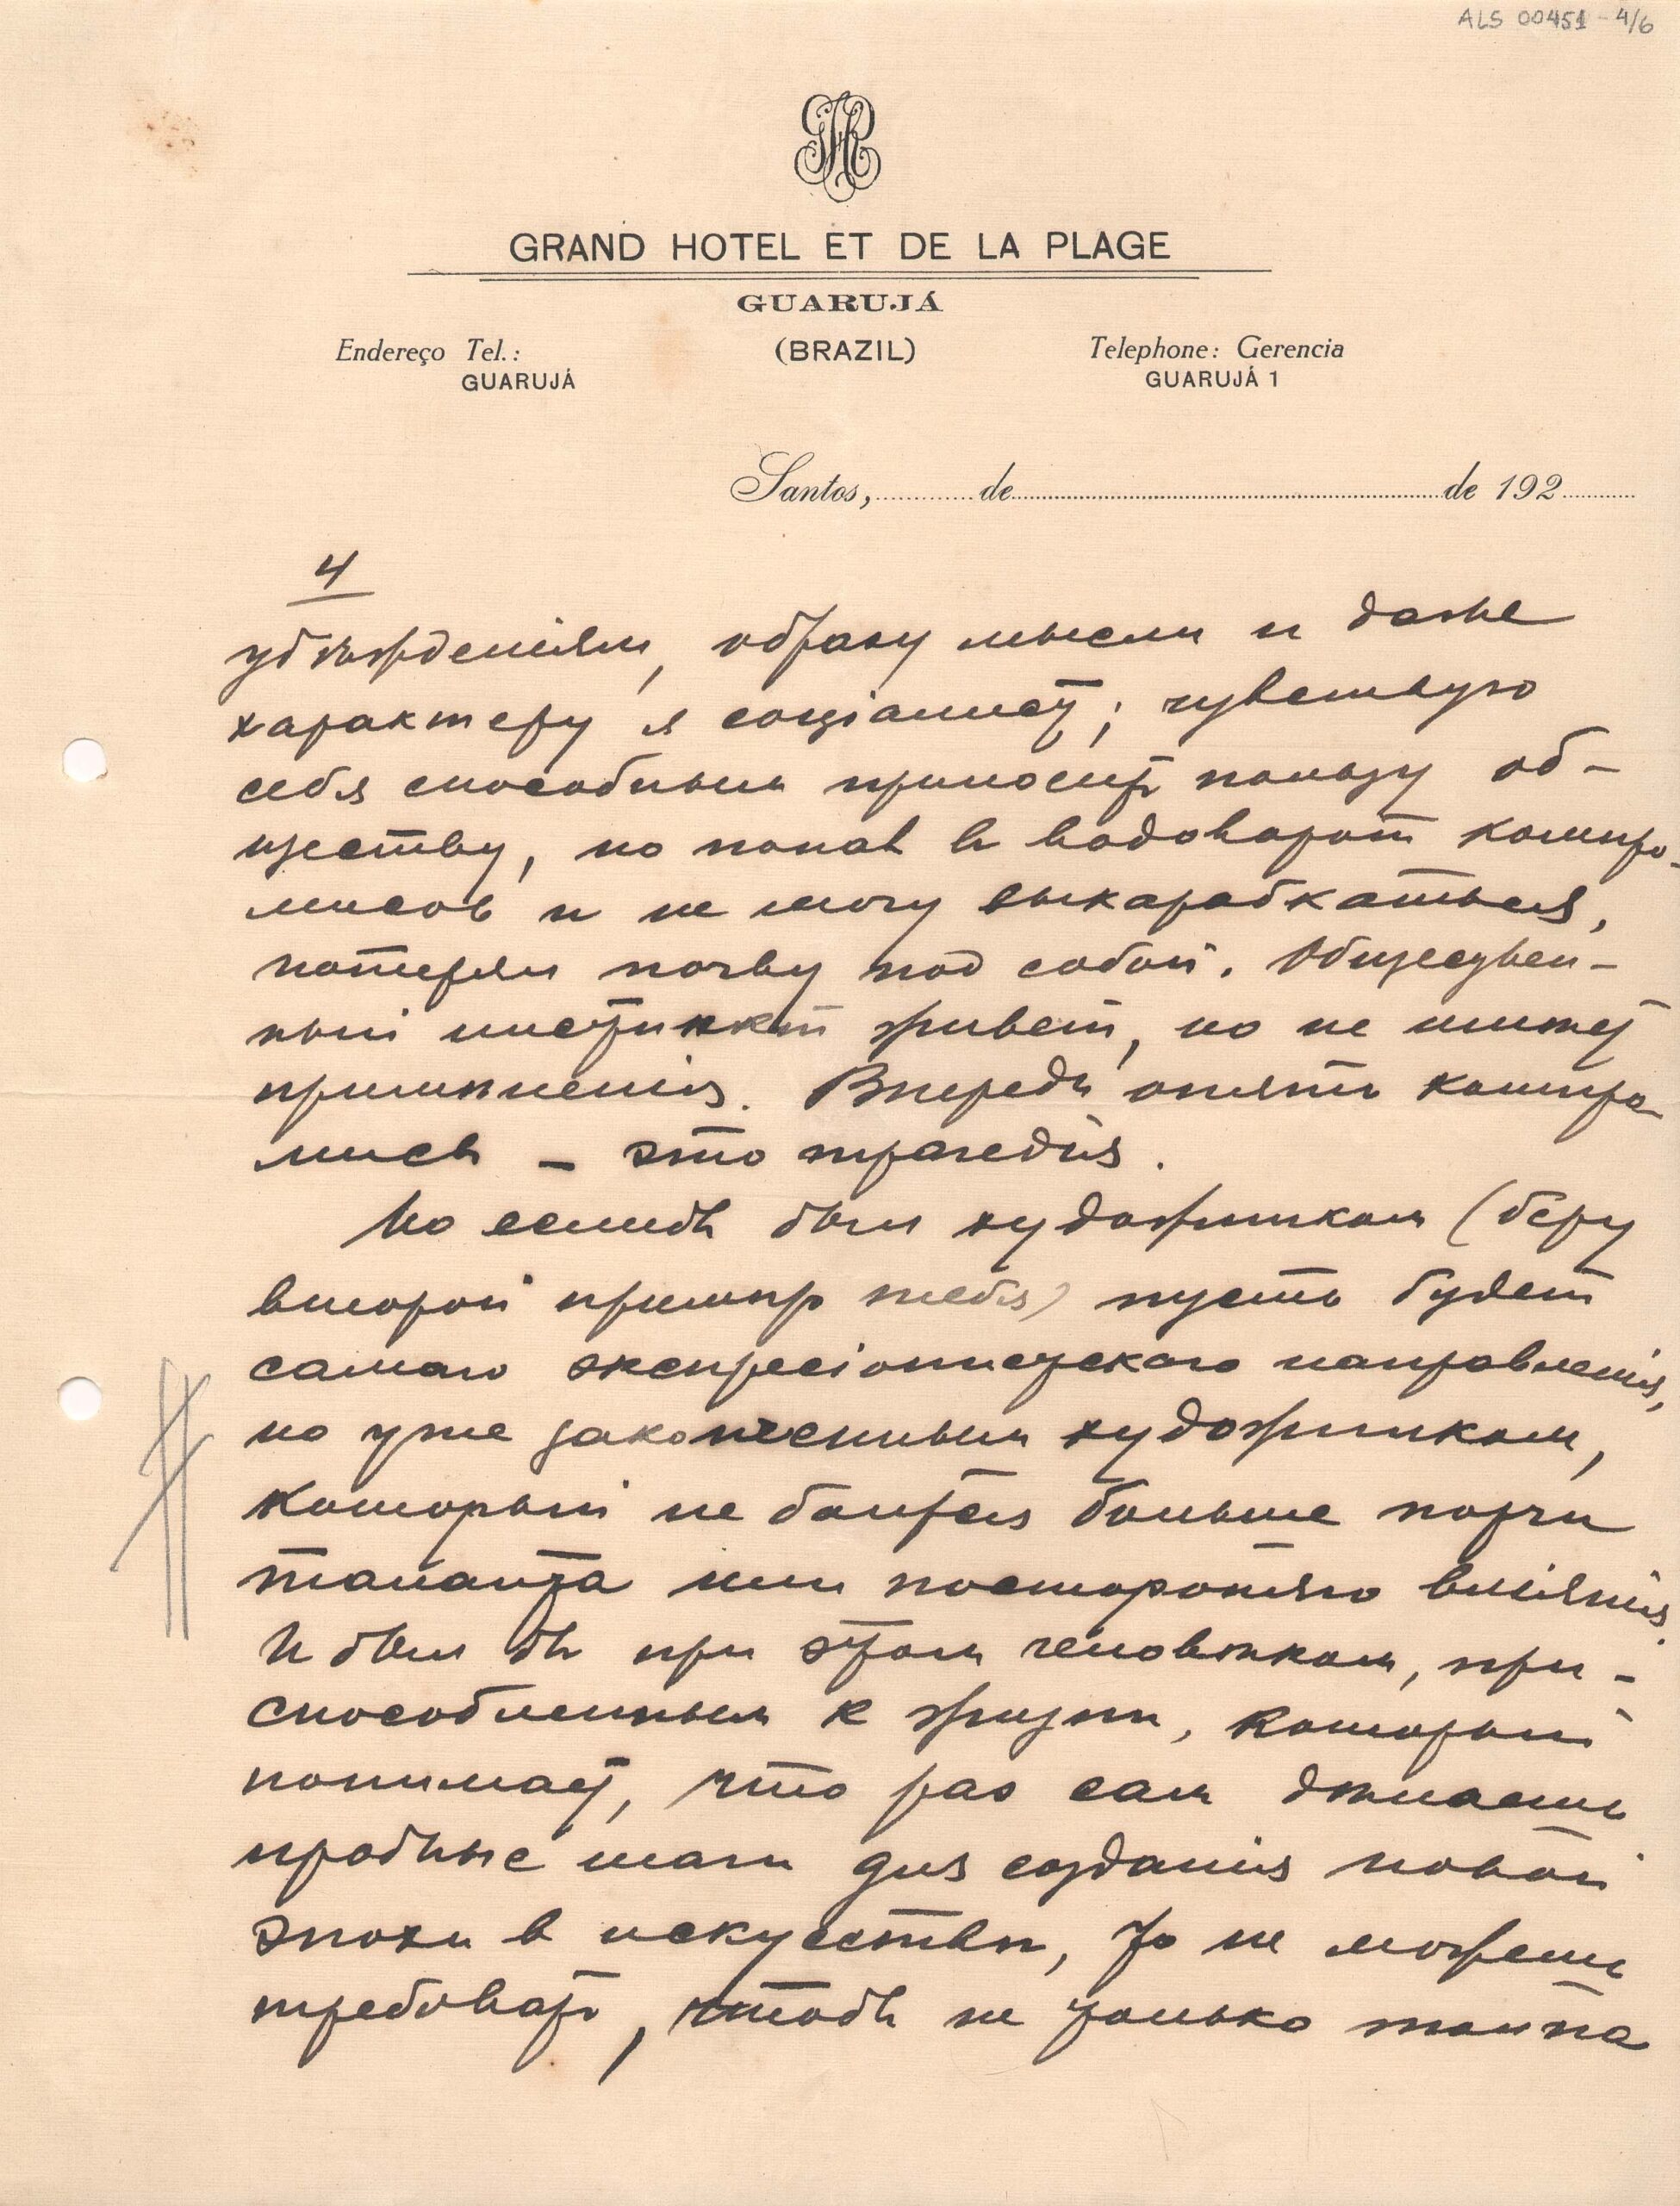 ALS 00451 - 4/6
GRAND HOTEL ET DE LA PLAGE
GUARUJÁ
(BRAZIL)
Endereço Tel.:
GUARUJÁ
Telephone: Gerencia
GUARUJÁ 1
Santos, de de 192
4
убѣжденіям, образу мысли и даже
характеру я соціалист; чувствую
себя способным приносить пользу об-
ществу, но попав в водоворот компро-
мисов и не могу выкарабкаться,
потерял почву под собой. Обществен-
ный инстинкт живет, но не имѣет
примѣненія. Впереди опять компро-
мисъ – это трагедія.
Но еслибъ был художником (беру
второй примѣр тебя) пусть будет
самаго экспресіонистскаго направленія,
но уже законченным художником,
который не боится больше порчи
таланта или посторонняго вліянія.
И был бы при этом человѣком, при-
способленным к жизни, который
понимает, что раз сам дѣлаешь
пробные шаги для созданія новой
эпохи в искусствѣ, то не можешь
требовать, чтобъ не только толпа